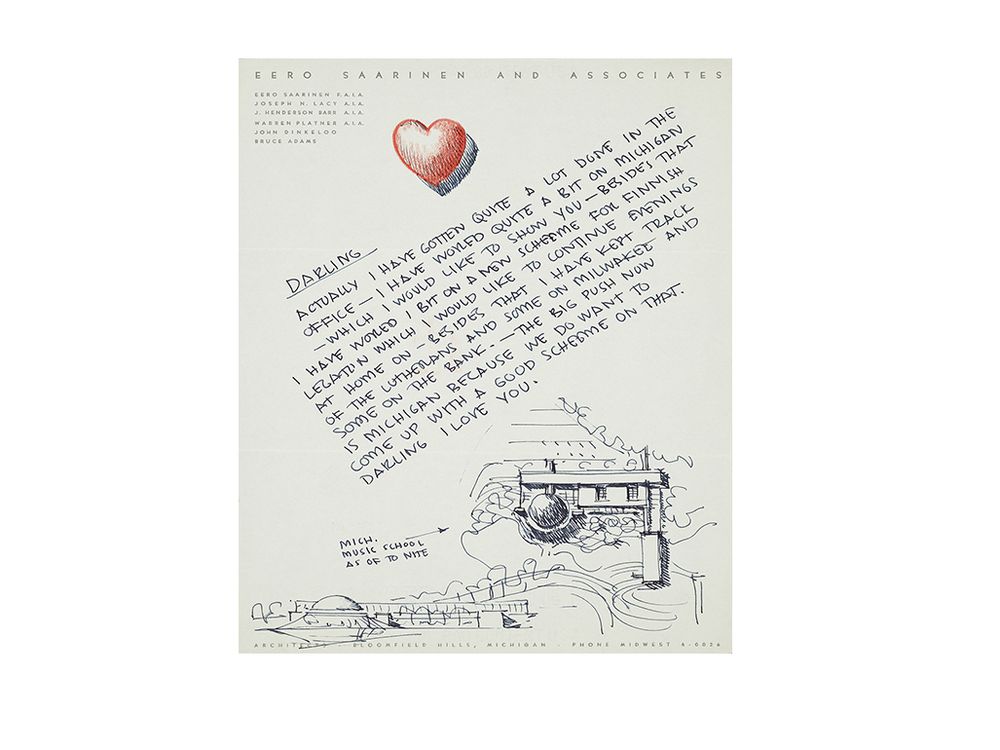 EERO SAARINEN AND ASSOCIATES
EERO SAARINEN F.A.I.A.
JOSEPH N. LACY A.I.A.
J. HENDERSON BARR A.I.A.
WARREN PLATNER A.I.A.
JOHN DINKELOO
BRUCE ADAMS
DARLING
ACTUALLY I HAVE GOTTEN QUITE A LOT DONE IN THE
OFFICE — I HAVE WORKED QUITE A BIT ON MICHIGAN
— WHICH I WOULD LIKE TO SHOW YOU — BESIDES THAT
I HAVE WORKED I BIT ON A NEW SCHEDME FOR FINNISH
LEGATON WHICH I WOULD LIKE TO CONTINUE EVENINGS
AT HOME ON — BESIDES THAT I HAVE KEPT TRACK
OF THE LUTHERANS AND SOME ON MILWAKEE AND
SOME ON THE BANK. — THE BIG PUSH NOW
IS MICHIGAN BECAUSE WE DO WANT TO
COME UP WITH A GOOD SCHEDME ON THAT.
DARLING I LOVE YOU.
MICH.
MUSIC SCHOOL
AS OF TO NITE
ARCHITECTS · BLOOMFIELD HILLS, MICHIGAN · PHONE MIDWEST 4-0026